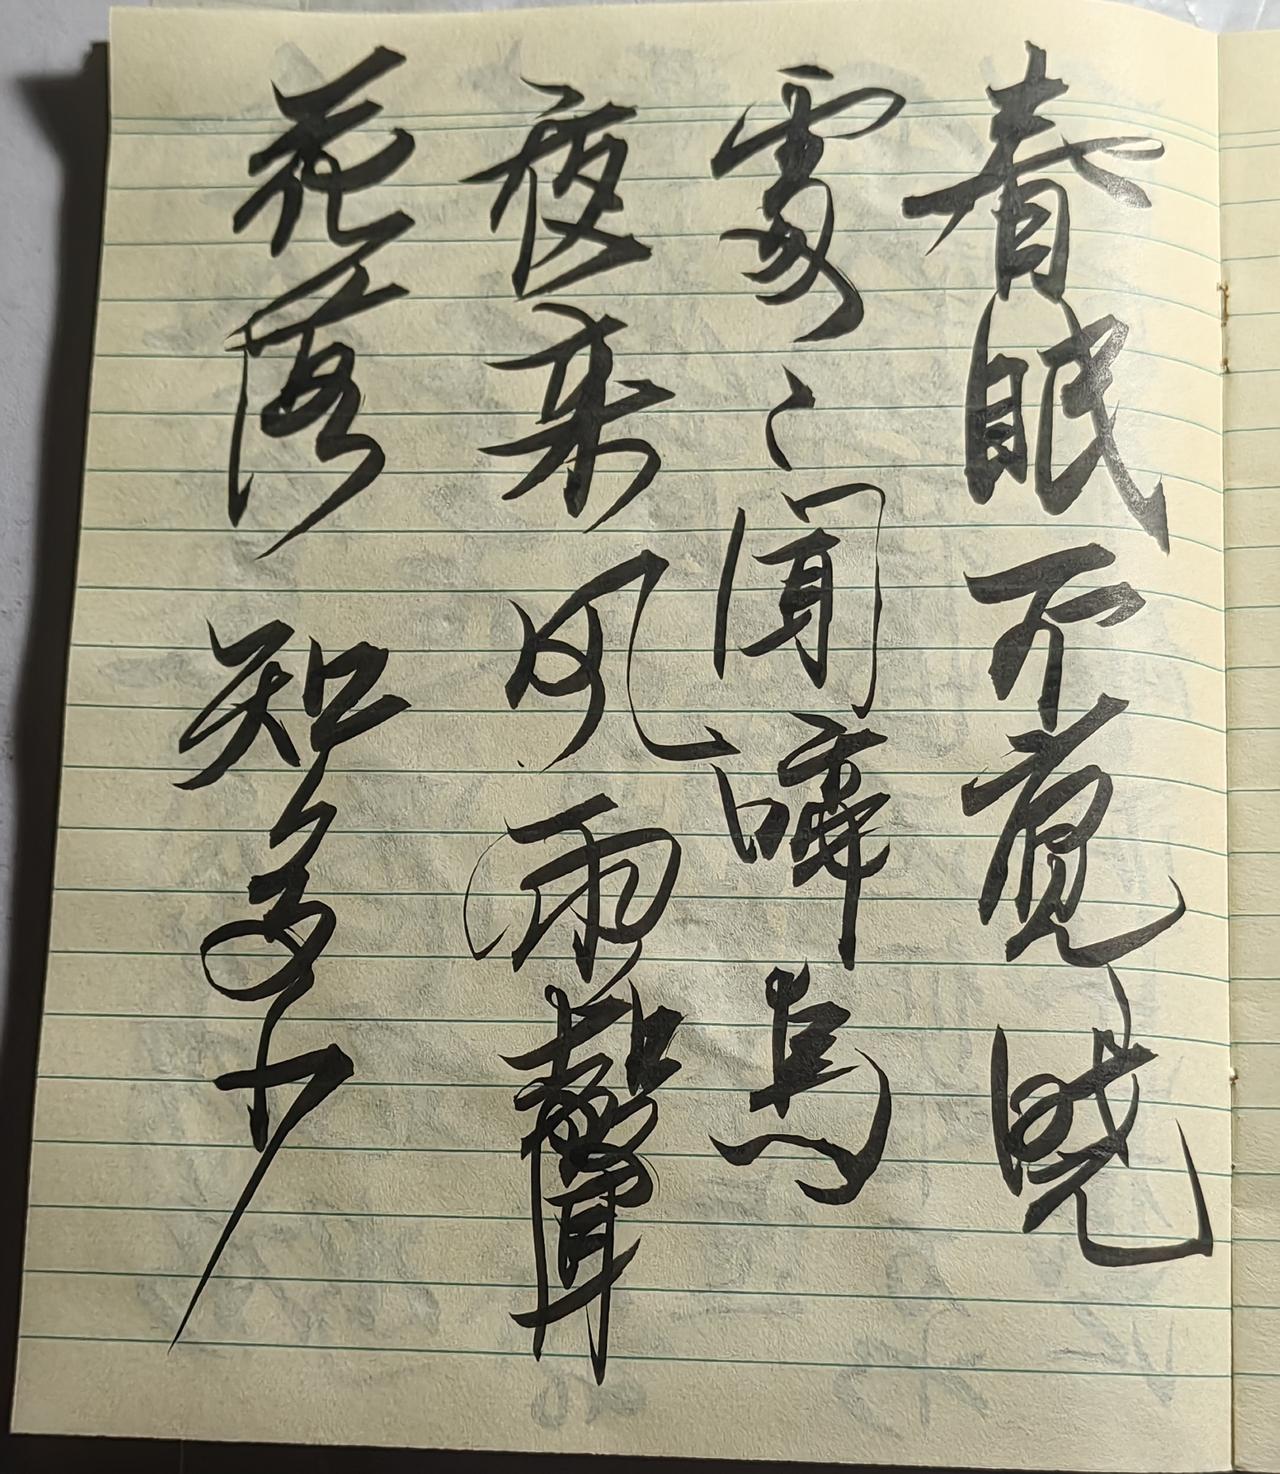 春眠不覺晓
處々闻啼鸟
夜来风雨聲
花落知多少